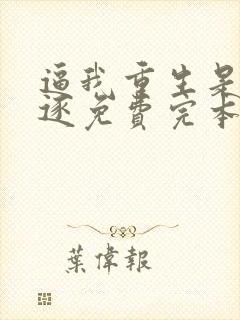 逼我重生是
逐免费完本
葉偉報